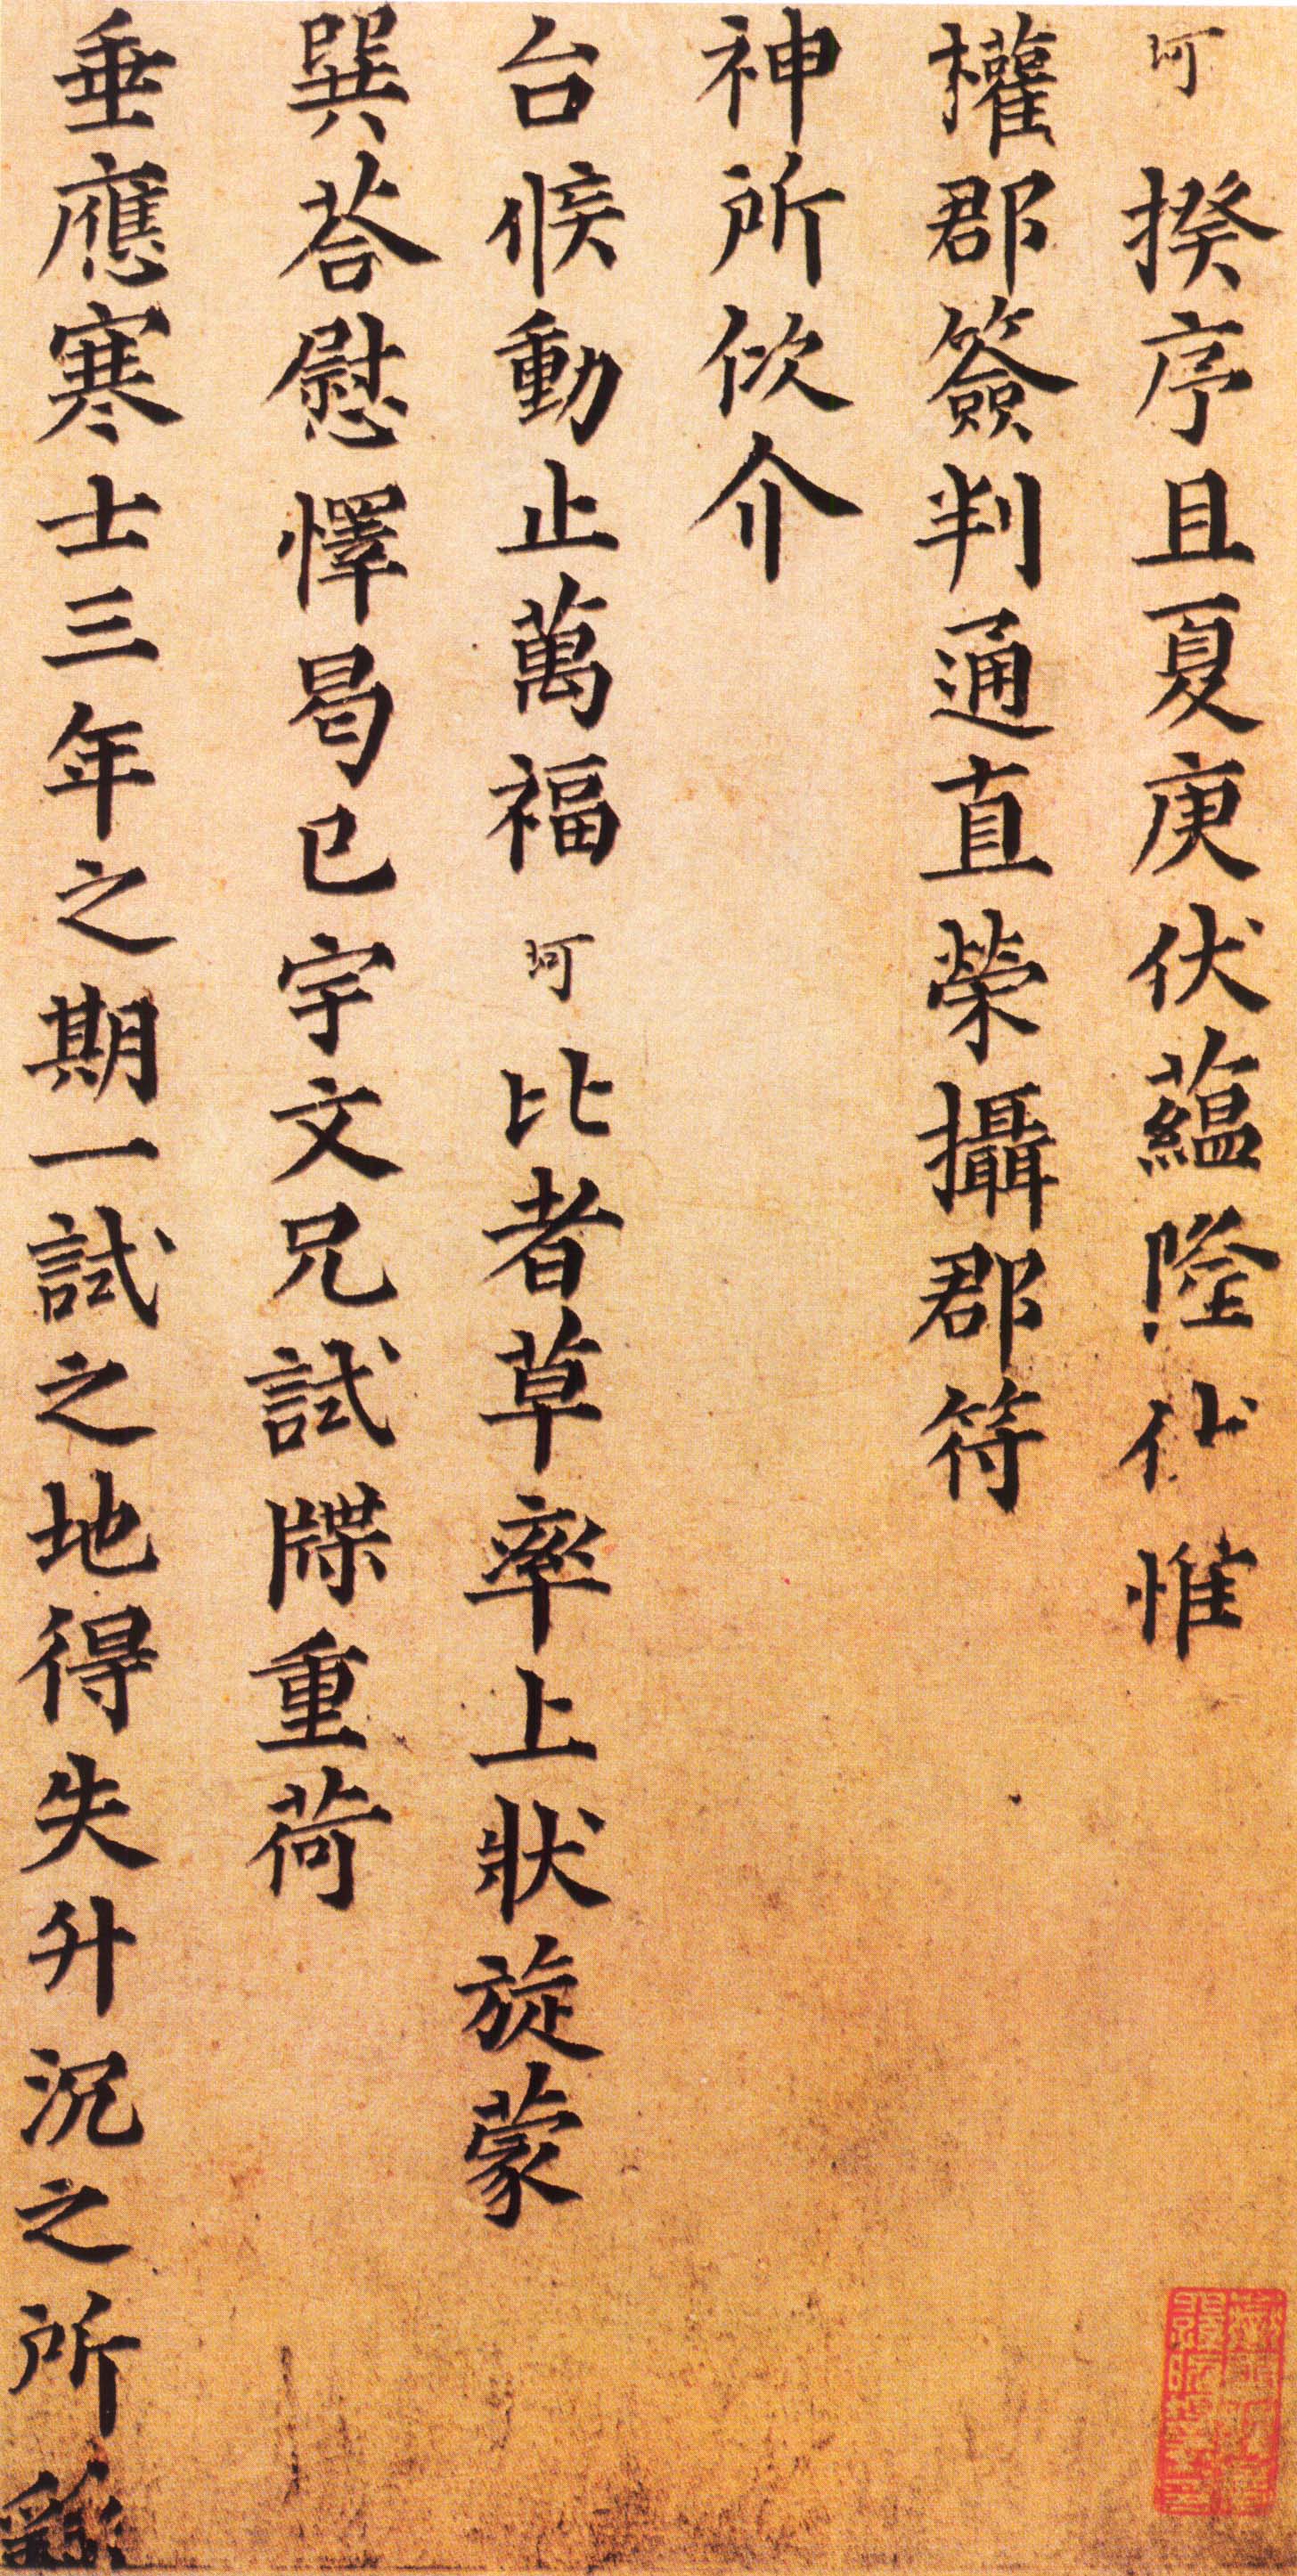 珂揆序且夏庚伏藴隆伏惟
權郡簽判通直榮攝郡符
神所依介
台候動止萬福珂比者草率上狀旋蒙
巽荅慰懌曷已宇文兄試牒重荷
垂應寒士三年之期一試之地得失升沉之所繇